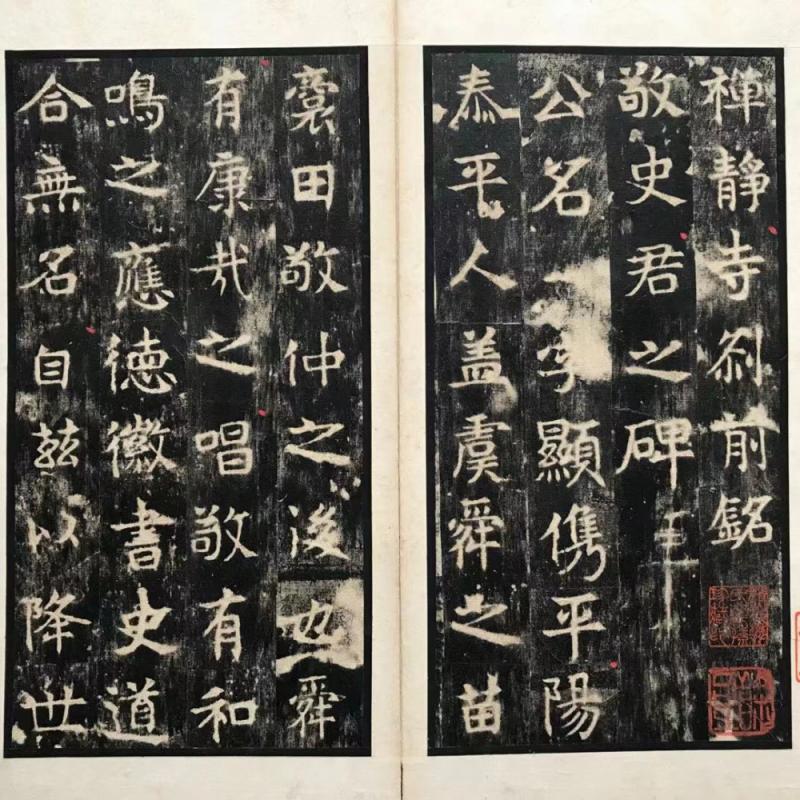 禅静寺刹前銘
敬史君之碑
公名字顯儁平陽
泰平人盖虞舜之苗
裔田敬仲之後也舜
有康哉之唱敬有和
鳴之應徳徽書史道
合無名自兹以降世